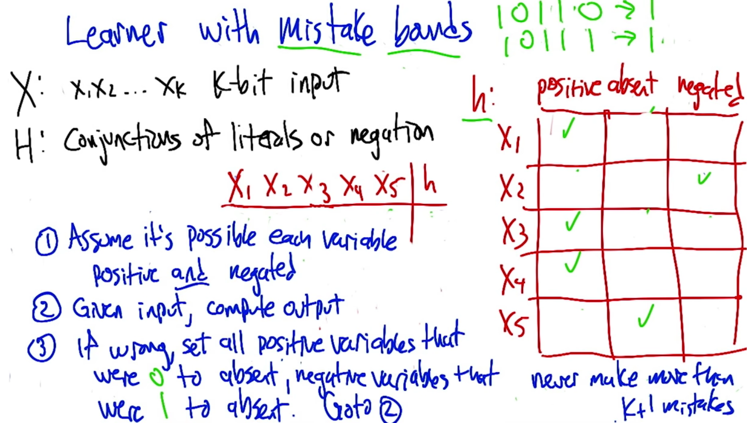 Learner with mistake bands
1 0 1 1 0 → 1
1 0 1 1 1 → 1
X: x1x2 ... xk k-bit input
H: Conjunctions of literals or negation
X1 X2 X3 X4 X5 h
① Assume it's possible each variable
positive and negated
② Given input, compute output
③ If wrong, set all positive variables that
were 0 to absent, negative variables that
were 1 to absent. Goto ②
h: positive absent negated
X1 ✓
X2 ✓
X3 ✓
X4 ✓
X5 ✓
never make more than
k+1 mistakes